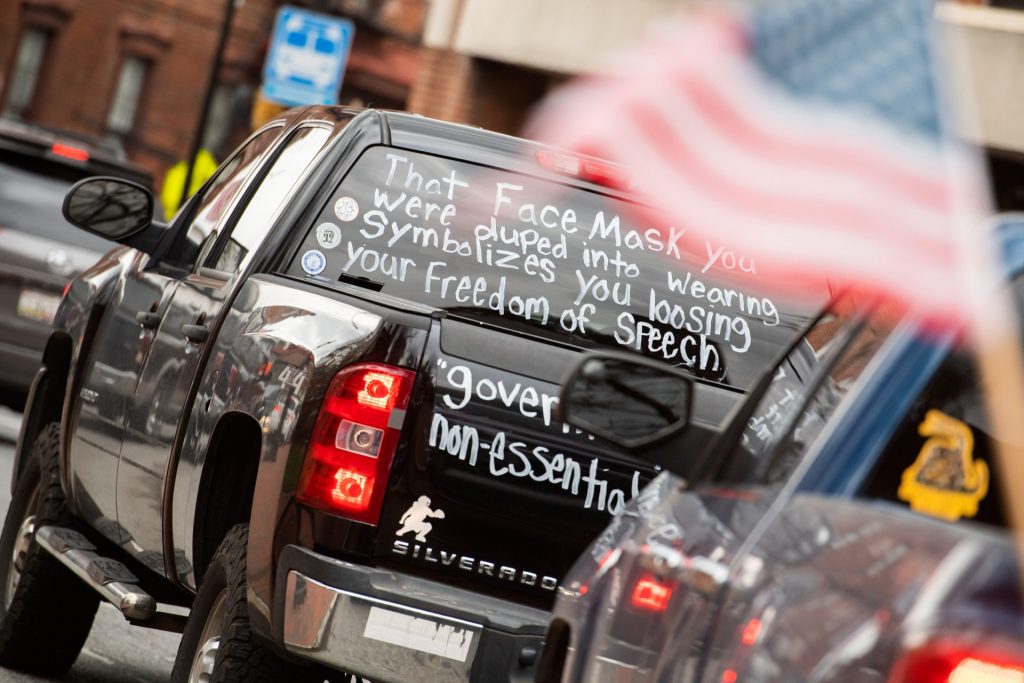 That Face Mask you
were duped into wearing
Symbolizes you loosing
your Freedom of Speech
"gover
non-essential
4x4
SILVERADO